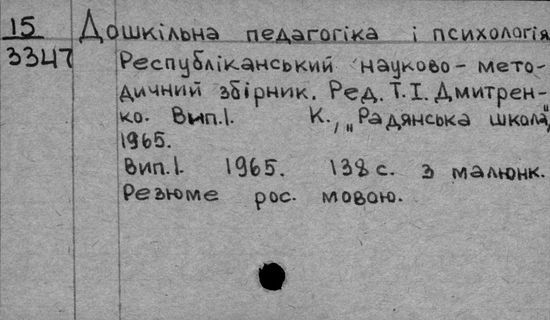 15 Дошкільна педагогіка і психологія
3347 Республіканський науково-мето-
дичний збірник. Ред. Т.І. Дмитрен-
ко. Вип.1. К., „Радянська школа",
1965.
Вип.1. 1965. 138 с. з малюнк.
Резюме рос. мовою.